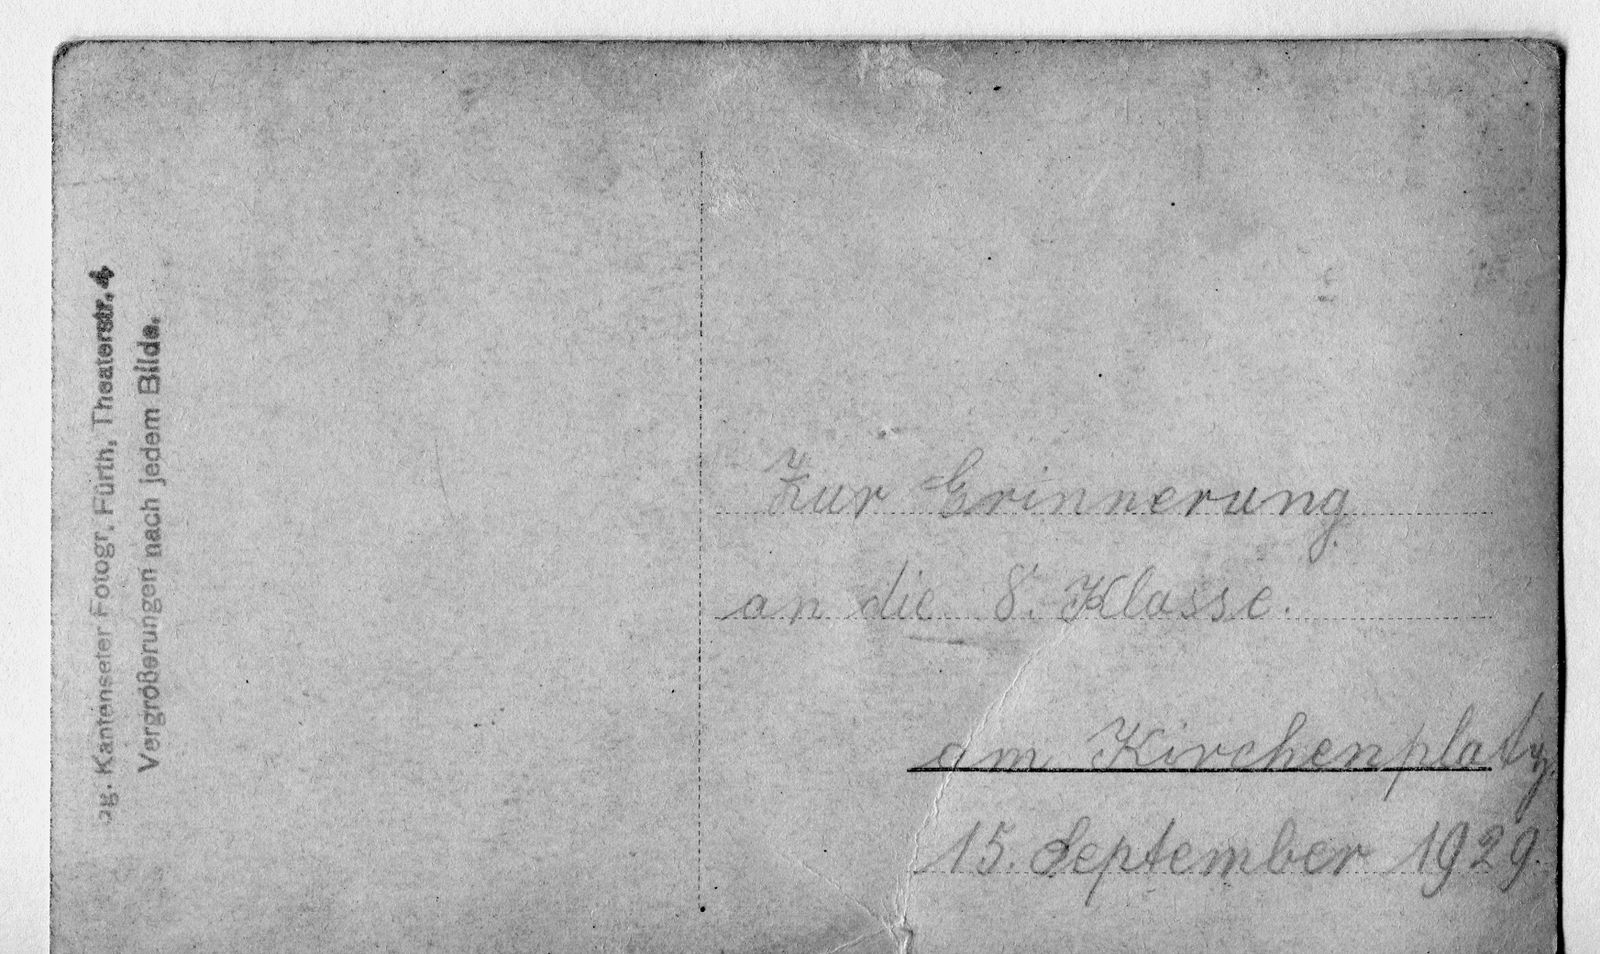 Kantenseter Fotogr, Fürth, Theaterstr. 4
Vergrößerungen nach jedem Bilde.
Zur Erinnerung
an die 8. Klasse.
am Kirchenplatz.
15. September 1929.